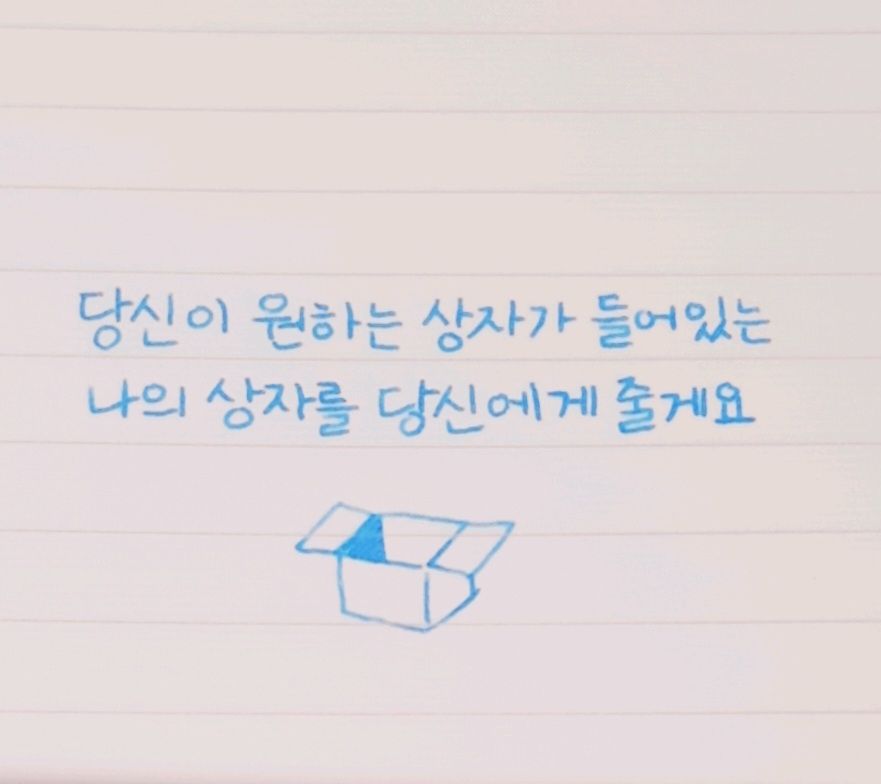 당신이 원하는 상자가 들어있는
나의 상자를 당신에게 줄게요